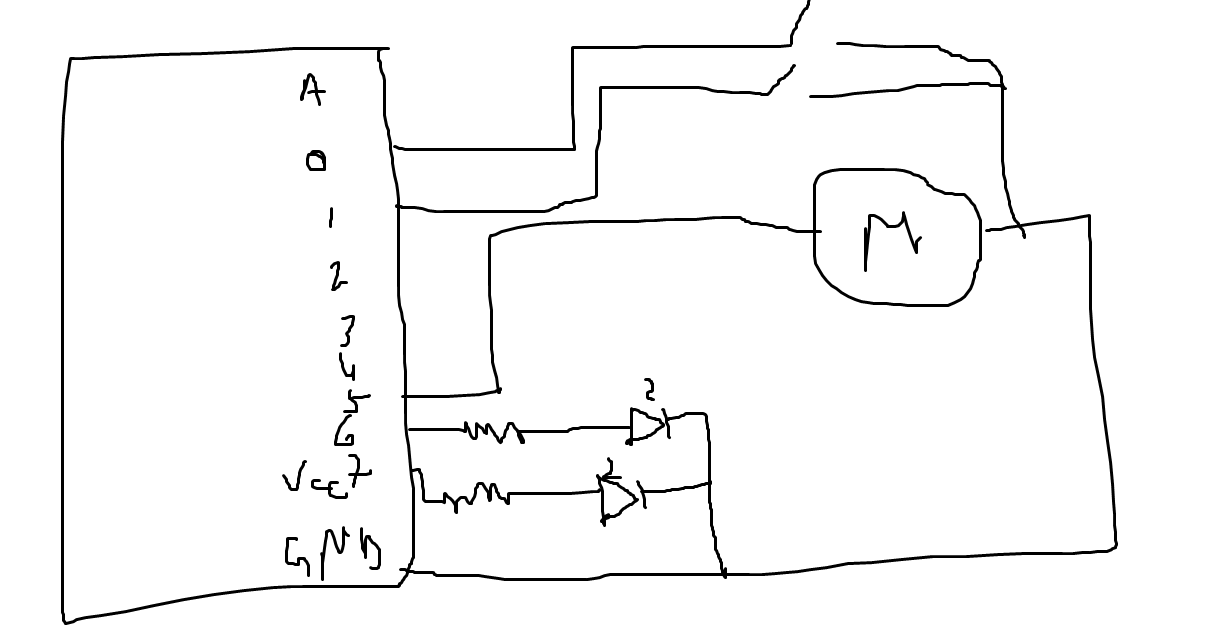 A
0
1
2
3
4
5
6
Vcc 7
GND
M
2
1